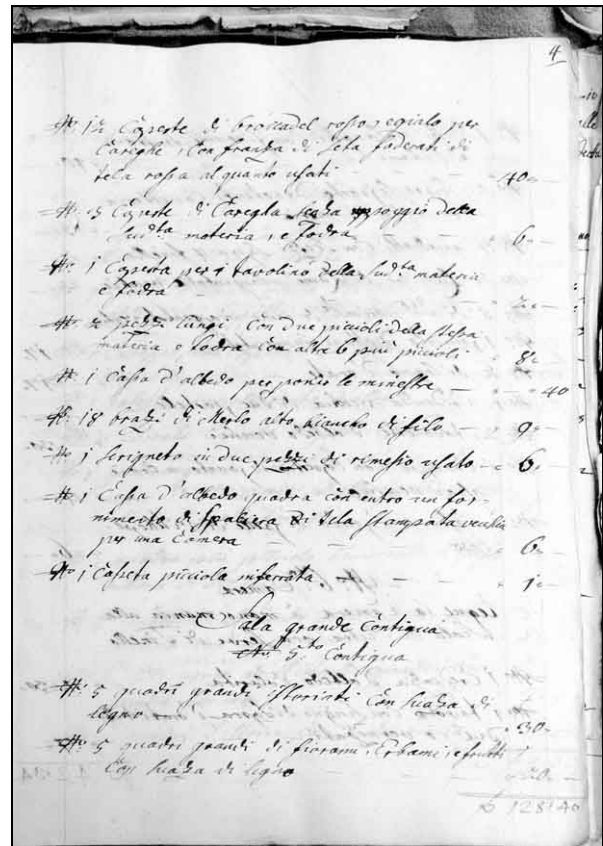 4
N.º 12 Coperte di broccadel rosso, e gialo per
Careghe, con franza di seta foderati di
tela rossa al quanto usati 40:-
N.º 3 Coperte di Caregha senza appoggio della
Sud.ta materia, e fodra 6:-
N.º 1 Coperta per 1 tavolino della Sud.ta materia
e fodra
N.º 2 pezzi lungi con due piccioli della stessa
materia e fodra con altre 6 più piccioli 8:-
N.º 1 Cassa d'albedo per ponir le minestre :40
N.º 18 brazi di Merlo alto biancho di filo 9:-
N.º 1 Scrigneto in due pezzi di rimesso usato 6:-
N.º 1 Cassa d'albedo quadra con entro un for-
nimento di spaliera di tela stampata vechia
per una Camera 6:-
N.º 1 Casseta picciola inferrata 1:-
Sala grande Contigua
N.º 5.to Contigua
N.º 5 quadri grandi Istoriati con suaza di
legno 30:-
N.º 5 quadri grandi di fiorami, Erbami, e frutti
con suaza di legno 20:-
128:40